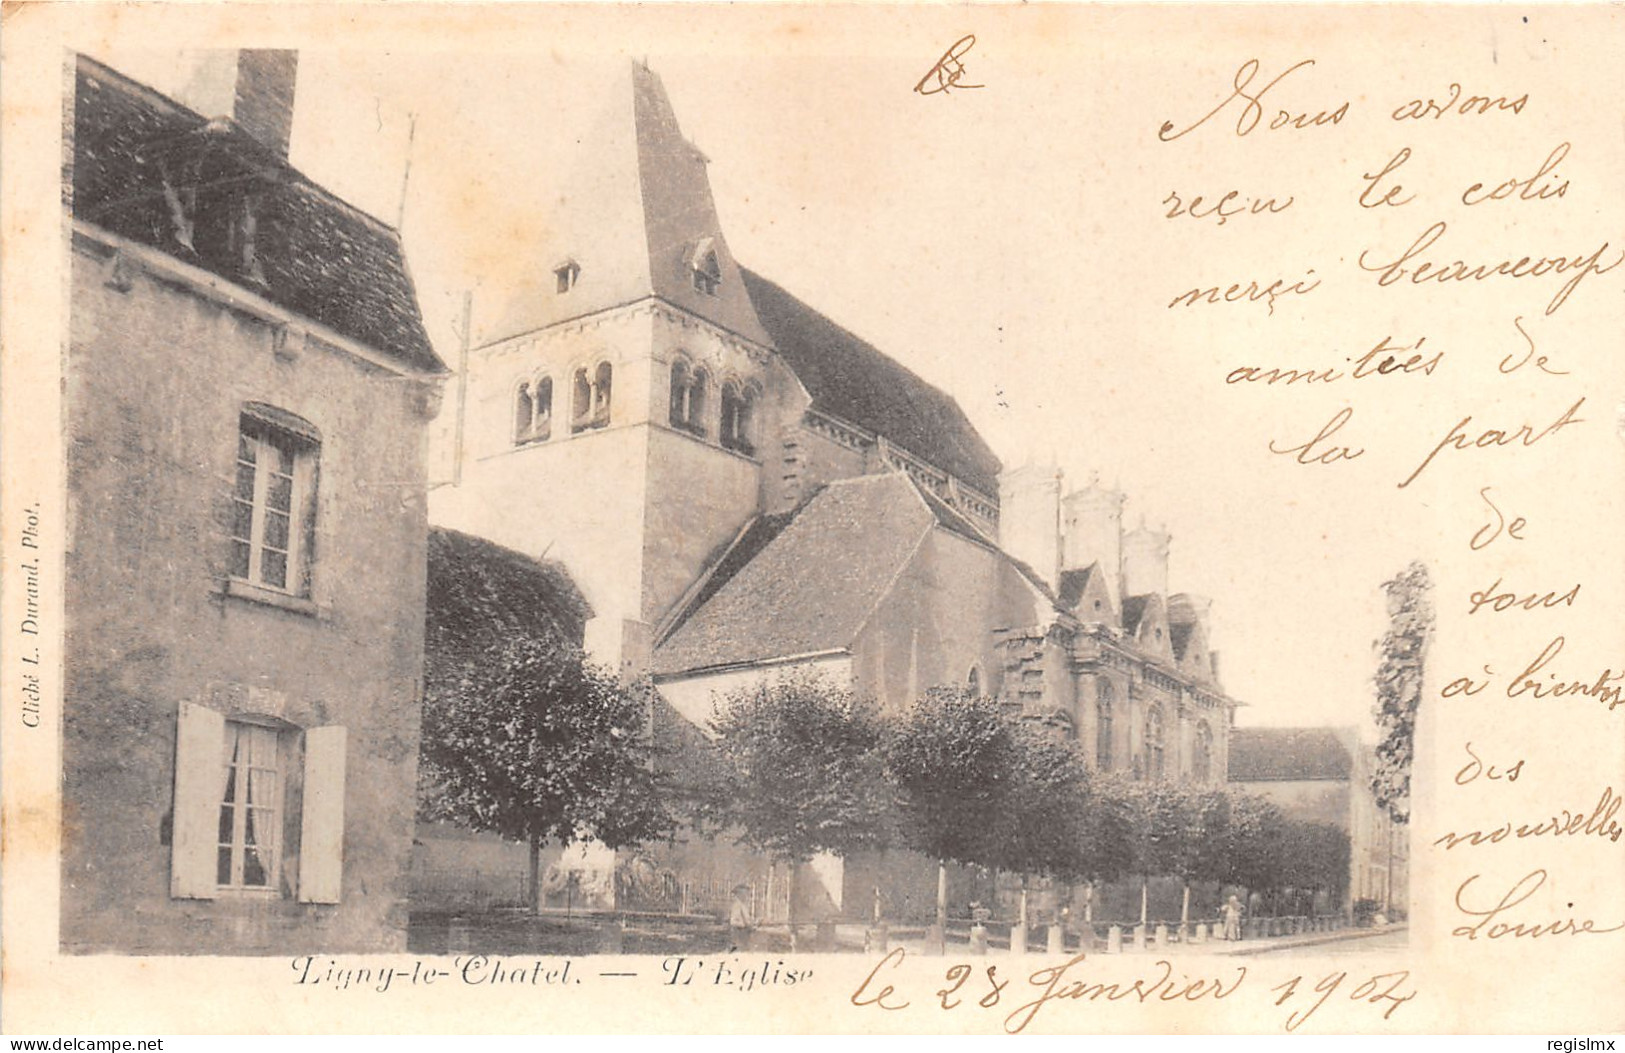 le
Nous avons
reçu le colis
merçi beaucoup
amitiés de
la part
de
tous
à bientôt
des
nouvelles
Louise
Cliché L. Durand, Phot.
Ligny-le-Chatel. — L'Église
le 28 Janvier 1904
delcampe.net
regislmx